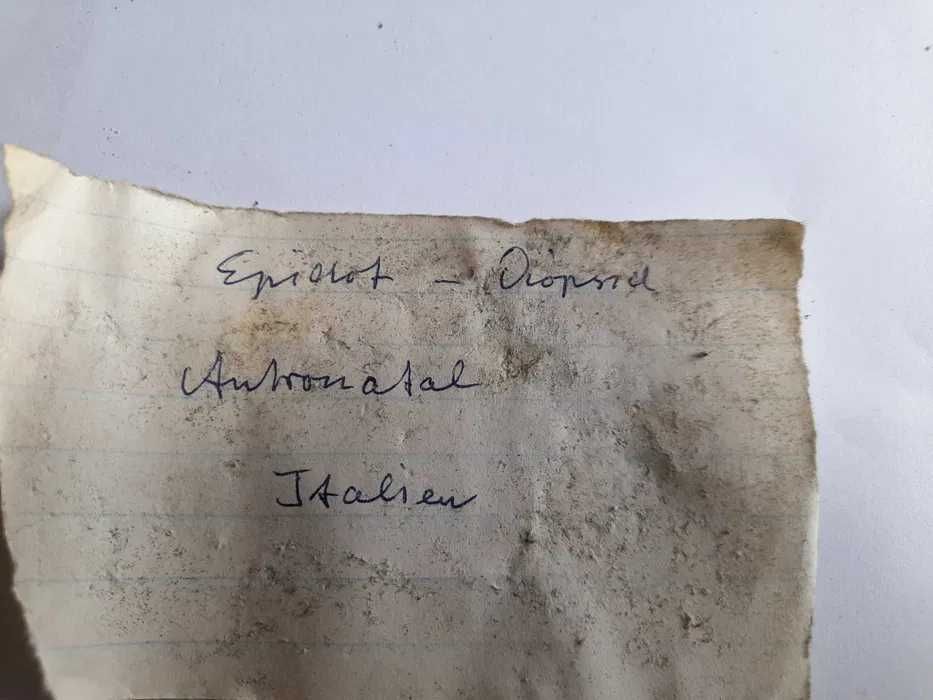 Epidot – Diopsid
Antronatal
Italien